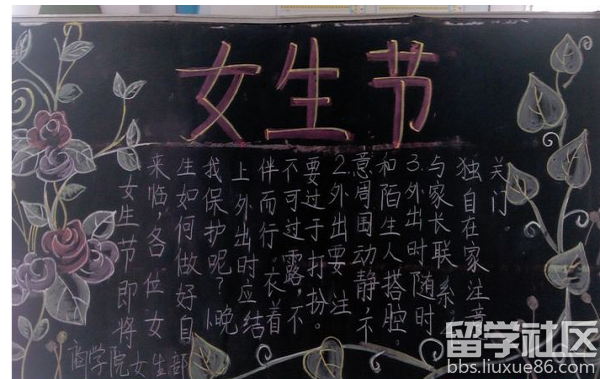 女生节
女生节即将
来临，各位女
生如何做好自
我保护呢？1.晚
上外出时应结
伴而行，衣着
不可过露，不
要过于打扮。
2.外出要注
意周围动静不
和陌生人搭腔.
3.外出时随时
与家长联系.
独自在家注意
关门
商学院女生部
留学社区
bbs.liuxue86.com